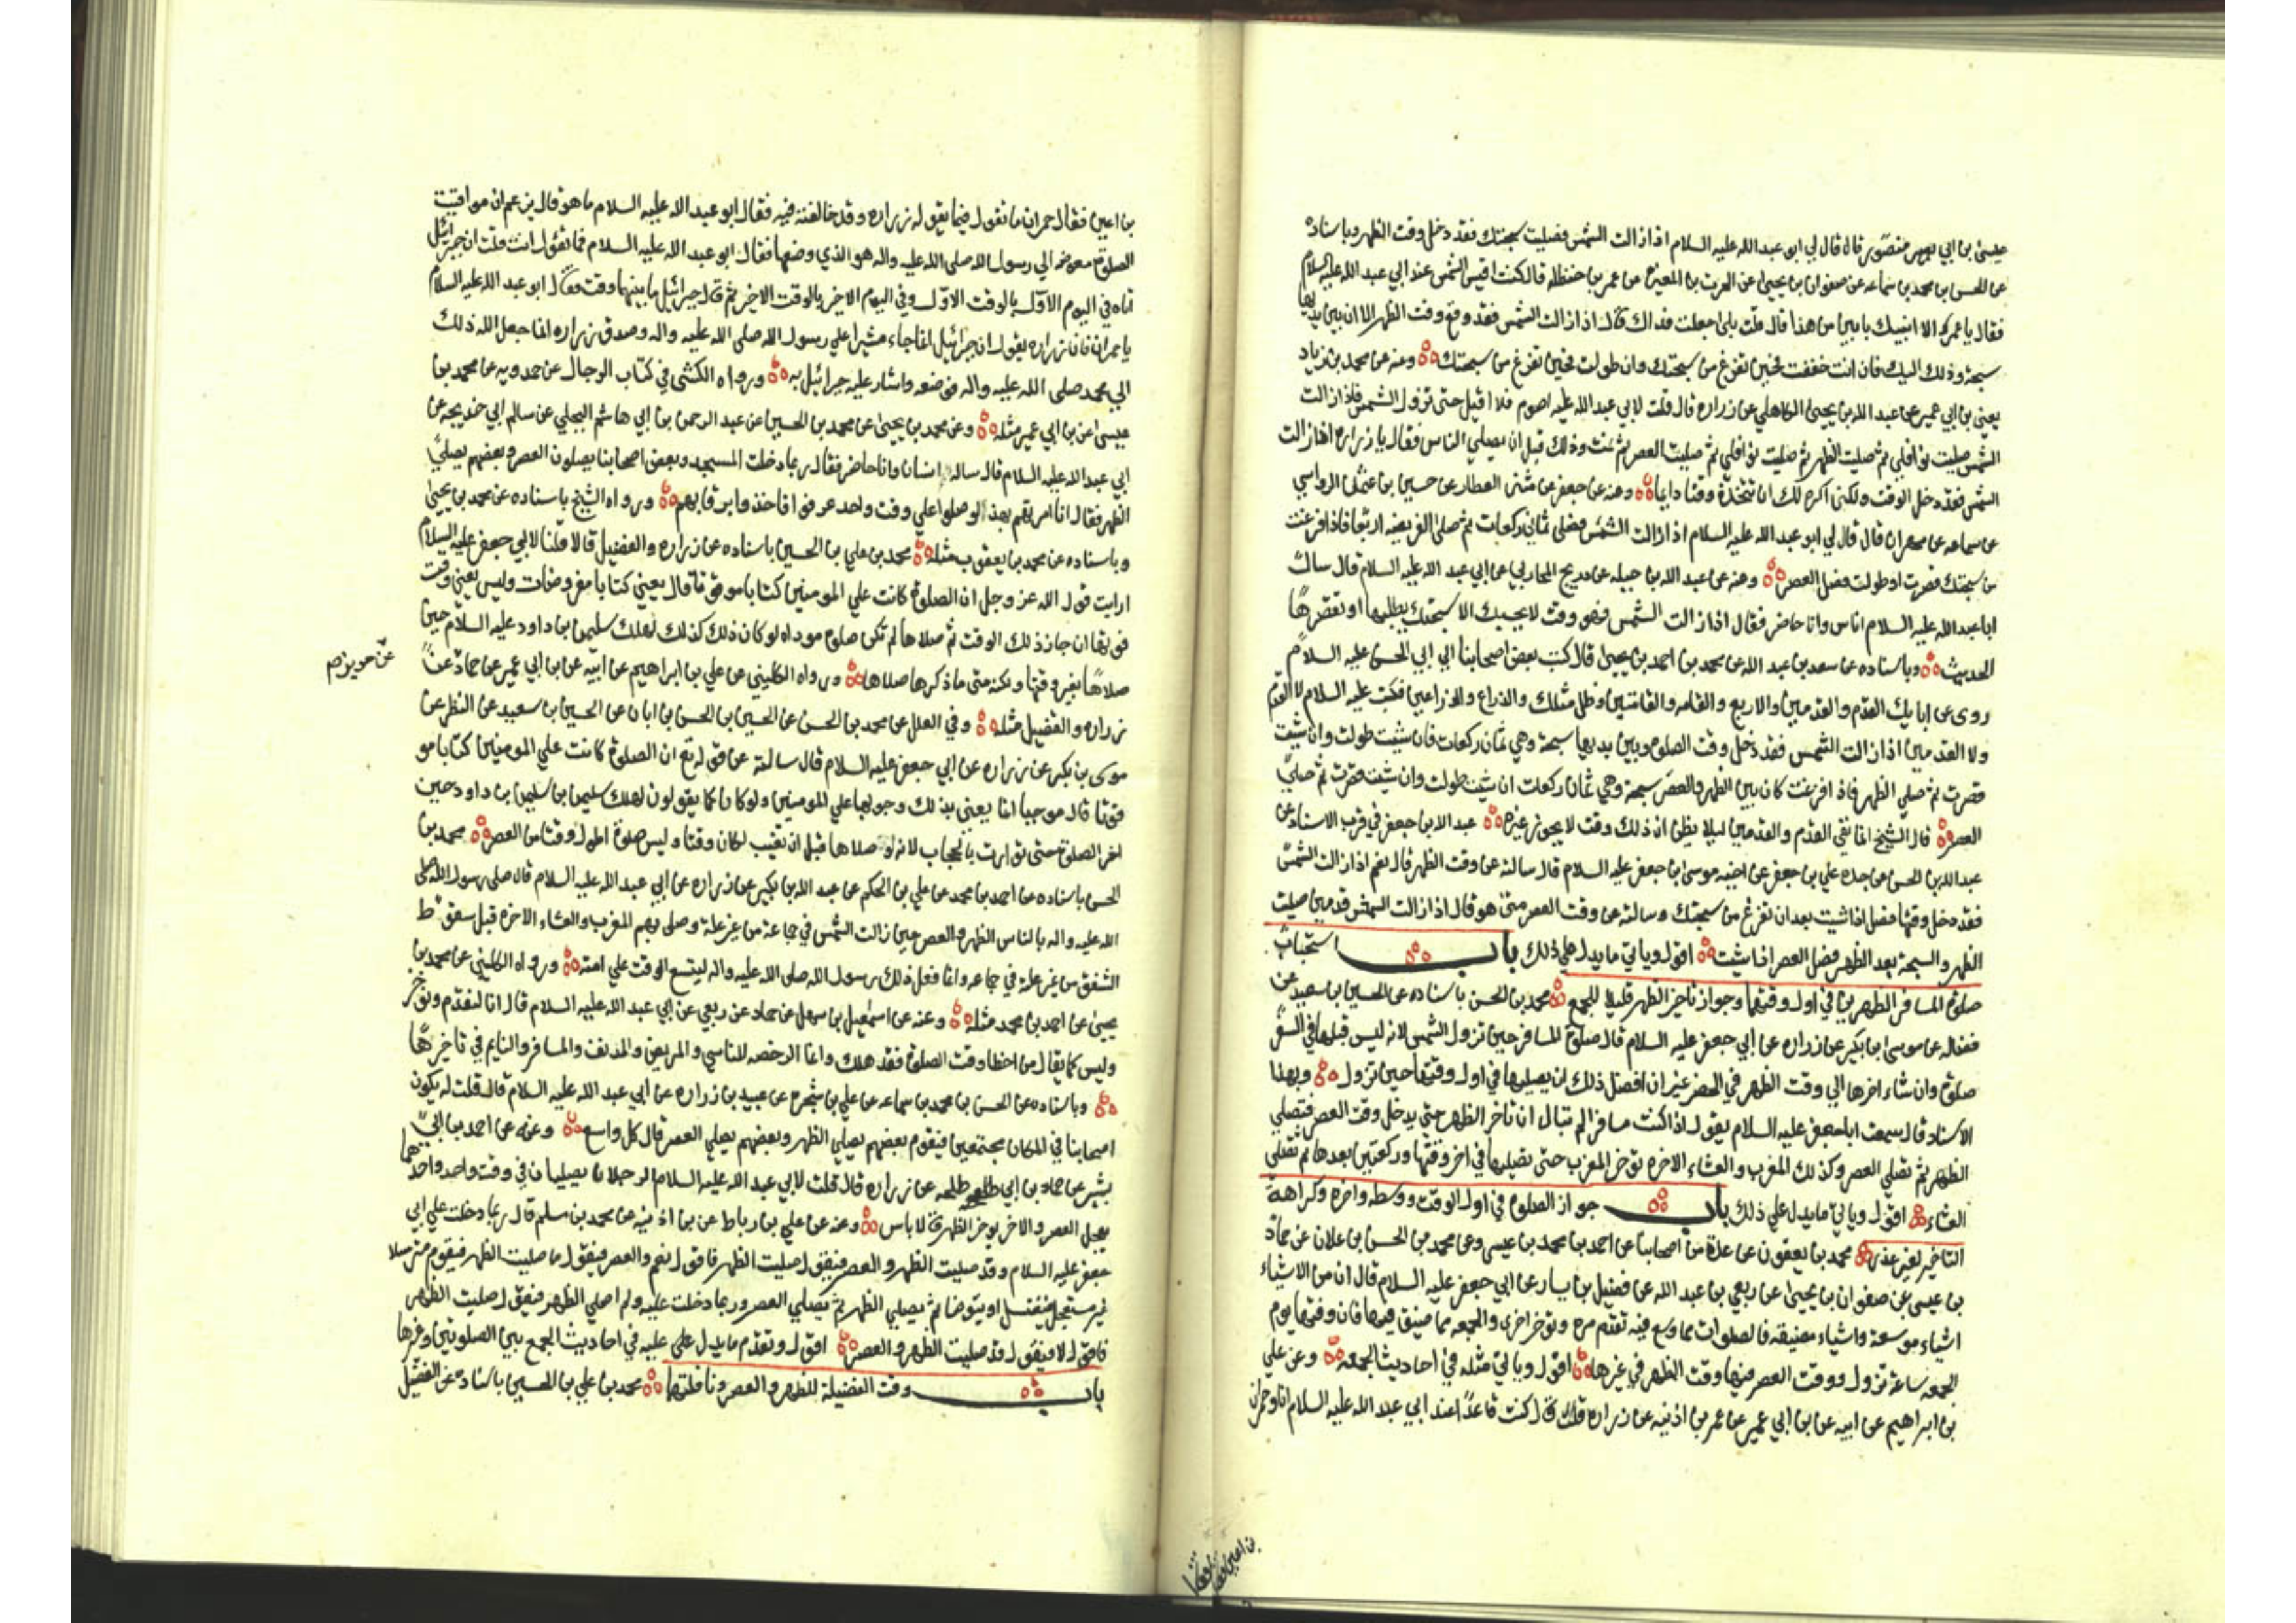 عيسى بن ابي منصور قال قال لي ابو عبد الله عليه السلام اذا زالت الشمس فصليت سبحتك فقد دخل وقت الظهر وباسناده
عن الحسن بن محمد بن سماعه عن صفوان بن يحيى عن الحرث بن المغيره عن عمر بن حنظله قال كنت اقيس الشمس عند ابي عبد الله عليه السلام
فقال يا عمر الا انبيك بابين من هذا قال قلت بلى جعلت فداك قال اذا زالت الشمس فقد وقع وقت الظهر الا ان بين يديها
سبحة وذلك اليك فان انت خففت فحين تفرغ من سبحتك وان طولت فحين تفرغ من سبحتك وعنه عن محمد بن زياد
يعني بن ابي عمير عن عبد الله بن يحيى الكاهلي عن زراره قال قلت لابي عبد الله عليه اصوم فلا اقيل حتى تزول الشمس فاذا زالت
الشمس صليت نوافلي ثم صليت الظهر ثم صليت نوافلي ثم صليت العصر ثم نمت وذلك قبل ان يصلي الناس فقال يا زراره اذا زالت
الشمس فقد دخل الوقت ولكني اكره لك ان تتخذه وقتا دايما وعنه عن جعفر عن مثنى العطار عن حسين بن عثمان الرواسي
عن سماعه عن مهران قال قال لي ابو عبد الله عليه السلام اذا زالت الشمس فصلي ثماني ركعات ثم صلى الفريضه اربعا فاذا فرغت
من سبحتك قصرت او طولت فصل العصر وعنه عن عبد الله بن جبيله عن ذريح المحاربي عن ابي عبد الله عليه السلام قال سال
ابا عبد الله عليه السلام اناس وانا حاضر فقال اذا زالت الشمس فهو وقت لا يحبسك الا سبحتك يطلبها او تقصرها
الحديث وباسناده عن سعد بن عبد الله عن محمد بن احمد بن يحيى قال كتب بعض اصحابنا الى ابي الحسن عليه السلام
روى عن ابايك القدم والقدمين والاربع والقامه والقامتين وظل مثلك والذراع والذراعين فكتب عليه السلام لا القدم
ولا القدمين اذا زالت الشمس فقد دخل وقت الصلوة وبين يديها سبحة وهي ثمان ركعات فان شئت طولت وان شئت
قصرت ثم صلي الظهر فاذا فرغت كان بين الظهر والعصر سبحة وهي ثمان ركعات ان شئت طولت وان شئت قصرت ثم صلي
العصر قال الشيخ انما نفي القدم والقدمين ليلا يظن ان ذلك وقت لا يجوز غيره عبد الله بن جعفر في قرب الاسناد عن
عبد الله بن الحسن عن جده علي بن جعفر عن اخيه موسى بن جعفر عليه السلام قال سالته عن وقت الظهر قال نعم اذا زالت الشمس
فقد دخل وقتها فصل اذا شئت بعد ان تفرغ من سبحتك وسالته عن وقت العصر متى هو قال اذا زالت الشمس قدمين صليت
الظهر والسبحة بعد الظهر فصل العصر اذا شئت اقول وياتي ما يدل على ذلك باب استحباب
صلوة المسافر الظهرين في اول وقتهما وجواز تاخير الظهر قليلا للجمع محمد بن الحسن باسناده عن الحسين بن سعيد عن
فضاله عن موسى بن بكير عن زراره عن ابي جعفر عليه السلام قال صلوة المسافر حين تزول الشمس لانه ليس قبلها في السفر
صلوة وان شاء اخرها الى وقت الظهر في الحضر غير ان افضل ذلك ان يصليها في اول وقتها حين تزول وبهذا
الاسناد قال سمعت ابا جعفر عليه السلام يقول اذا كنت مسافرا لم تبال ان تاخر الظهر حتى يدخل وقت العصر فتصلي
الظهر ثم تصلي العصر وكذلك المغرب والعشاء الاخره توخر المغرب حتى تصليها في اخر وقتها وركعتين بعدها ثم تصلي
العشاء اقول وياتي ما يدل على ذلك باب جواز الصلوة في اول الوقت ووسطه واخره وكراهة
التاخير لغير عذر محمد بن يعقوب عن عدة من اصحابنا عن احمد بن محمد بن عيسى وعن محمد بن الحسن بن علان عن حماد
بن عيسى عن صفوان بن يحيى عن ربعي بن عبد الله عن فضيل بن يسار عن ابي جعفر عليه السلام قال ان من الاشياء
اشياء موسعة واشياء مضيقه فالصلوات مما وسع فيه تقدم مره وتوخر اخرى والجمعه مما ضيق فيها فان وقتها يوم
الجمعه ساعة تزول ووقت العصر فيها وقت الظهر في غيرها اقول وياتي مثله في احاديث الجمعه وعن علي
بن ابراهيم عن ابيه عن بن ابي عمير عن عمر بن اذينه عن زراره قال كنت قاعدا عند ابي عبد الله عليه السلام انا وحمران
بن اعين فقال
بن اعين فقال حمران ما تقول فيما يقوله زراره وقد خالفته فيه فقال ابو عبد الله عليه السلام ما هو قال يزعم ان مواقيت
الصلوة مفوضه الى رسول الله صلى الله عليه واله هو الذي وضعها فقال ابو عبد الله عليه السلام فما تقول انت قلت ان جبرائيل
اتاه في اليوم الاول بالوقت الاول وفي اليوم الاخير بالوقت الاخير ثم قال جبرائيل ما بينهما وقت فقال ابو عبد الله عليه السلام
يا حمران فان زراره يقول ان جبرائيل انما جاء مشيرا على رسول الله صلى الله عليه واله وصدق زراره انما جعل الله ذلك
الى محمد صلى الله عليه واله فوضعه واشار عليه جبرائيل به ورواه الكشي في كتاب الرجال عن حمدويه عن محمد بن
عيسى عن بن ابي عمير مثله وعن محمد بن يحيى عن محمد بن الحسين عن عبد الرحمن بن ابي هاشم البجلي عن سالم ابي خديجه عن
ابي عبد الله عليه السلام قال ساله انسان وانا حاضر فقال ربما دخلت المسجد وبعض اصحابنا يصلون العصر وبعضهم يصلي
الظهر فقال انا امرتهم بهذا لو صلوا على وقت واحد عرفوا فاخذوا برقابهم ورواه الشيخ باسناده عن محمد بن يحيى
وباسناده عن محمد بن يعقوب مثله محمد بن علي بن الحسين باسناده عن زراره والفضيل قالا قلنا لابي جعفر عليه السلام
ارايت قول الله عز وجل ان الصلوة كانت على المومنين كتابا موقوتا قال يعني كتابا مفروضات وليس يعني وقت
فوتها ان جاز ذلك الوقت ثم صلاها لم تكن صلوة موداه لو كان ذلك كذلك لهلك سليمن بن داود عليه السلام حين
صلاها بغير وقتها ولكنه متى ما ذكرها صلاها ورواه الكليني عن علي بن ابراهيم عن ابيه عن بن ابي عمير عن حماد عن
زراره والفضيل مثله وفي العلل عن محمد بن الحسن عن الحسين بن الحسن بن ابان عن الحسين بن سعيد عن النظر عن
موسى بن بكير عن زراره عن ابي جعفر عليه السلام قال سالته عن قوله تع ان الصلوة كانت على المومنين كتابا مو
قوتا قال موجبا انما يعني بذلك وجوبها على المومنين ولو كان كما يقولون لهلك سليمن بن سليمن بن داود حين
اخر الصلوة حتى توارت بالحجاب لانه لو صلاها قبل ان تغيب لكان وقتا وليس صلوة اطول وقتا من العصر محمد بن
الحسن باسناده عن احمد بن محمد عن علي بن الحكم عن عبد الله بن بكير عن زراره عن ابي عبد الله عليه السلام قال صلى رسول الله صلى
الله عليه واله بالناس الظهر والعصر حين زالت الشمس في جماعة من غير علة وصلى بهم المغرب والعشاء الاخره قبل سقوط
الشفق من غير علة في جماعه وانما فعل ذلك رسول الله صلى الله عليه واله ليتسع الوقت على امته ورواه الكليني عن محمد بن
يحيى عن احمد بن محمد مثله وعنه عن اسمعيل بن سهل عن حماد عن ربعي عن ابي عبد الله عليه السلام قال انا لنقدم ونوخر
وليس كما يقال من اخطا وقت الصلوة فقد هلك وانما الرخصه للناسي والمريض والمدنف والمسافر والنايم في تاخيرها
وباسناده عن الحسن بن محمد بن سماعه عن علي بن شجره عن عبيد بن زراره عن ابي عبد الله عليه السلام قال قلت له يكون
اصحابنا في المكان مجتمعين فيقوم بعضهم يصلي الظهر وبعضهم يصلي العصر قال كل واسع وعنه عن احمد بن ابي
بشير عن حماد بن ابي طلحه عن زراره قال قلت لابي عبد الله عليه السلام الرجلان يصليان في وقت واحد واحدهما
يعجل العصر والاخر يوخر الظهر قال لا باس وعنه عن علي بن رباط عن بن اذينه عن محمد بن مسلم قال ربما دخلت على ابي
جعفر عليه السلام وقد صليت الظهر والعصر فيقول صليت الظهر فاقول نعم والعصر فيقول ما صليت الظهر فيقوم مترسلا
غير مستعجل فيغتسل او يتوضا ثم يصلي الظهر ثم يصلي العصر وربما دخلت عليه ولم اصلي الظهر فيقول صليت الظهر
فاقول لا فيقول قد صليت الظهر والعصر اقول وتقدم ما يدل على عليه في احاديث الجمع بين الصلوتين وغيرها
باب وقت الفضيلة للظهر والعصر ونافلتهما محمد بن علي بن الحسين باسناده عن الفضيل